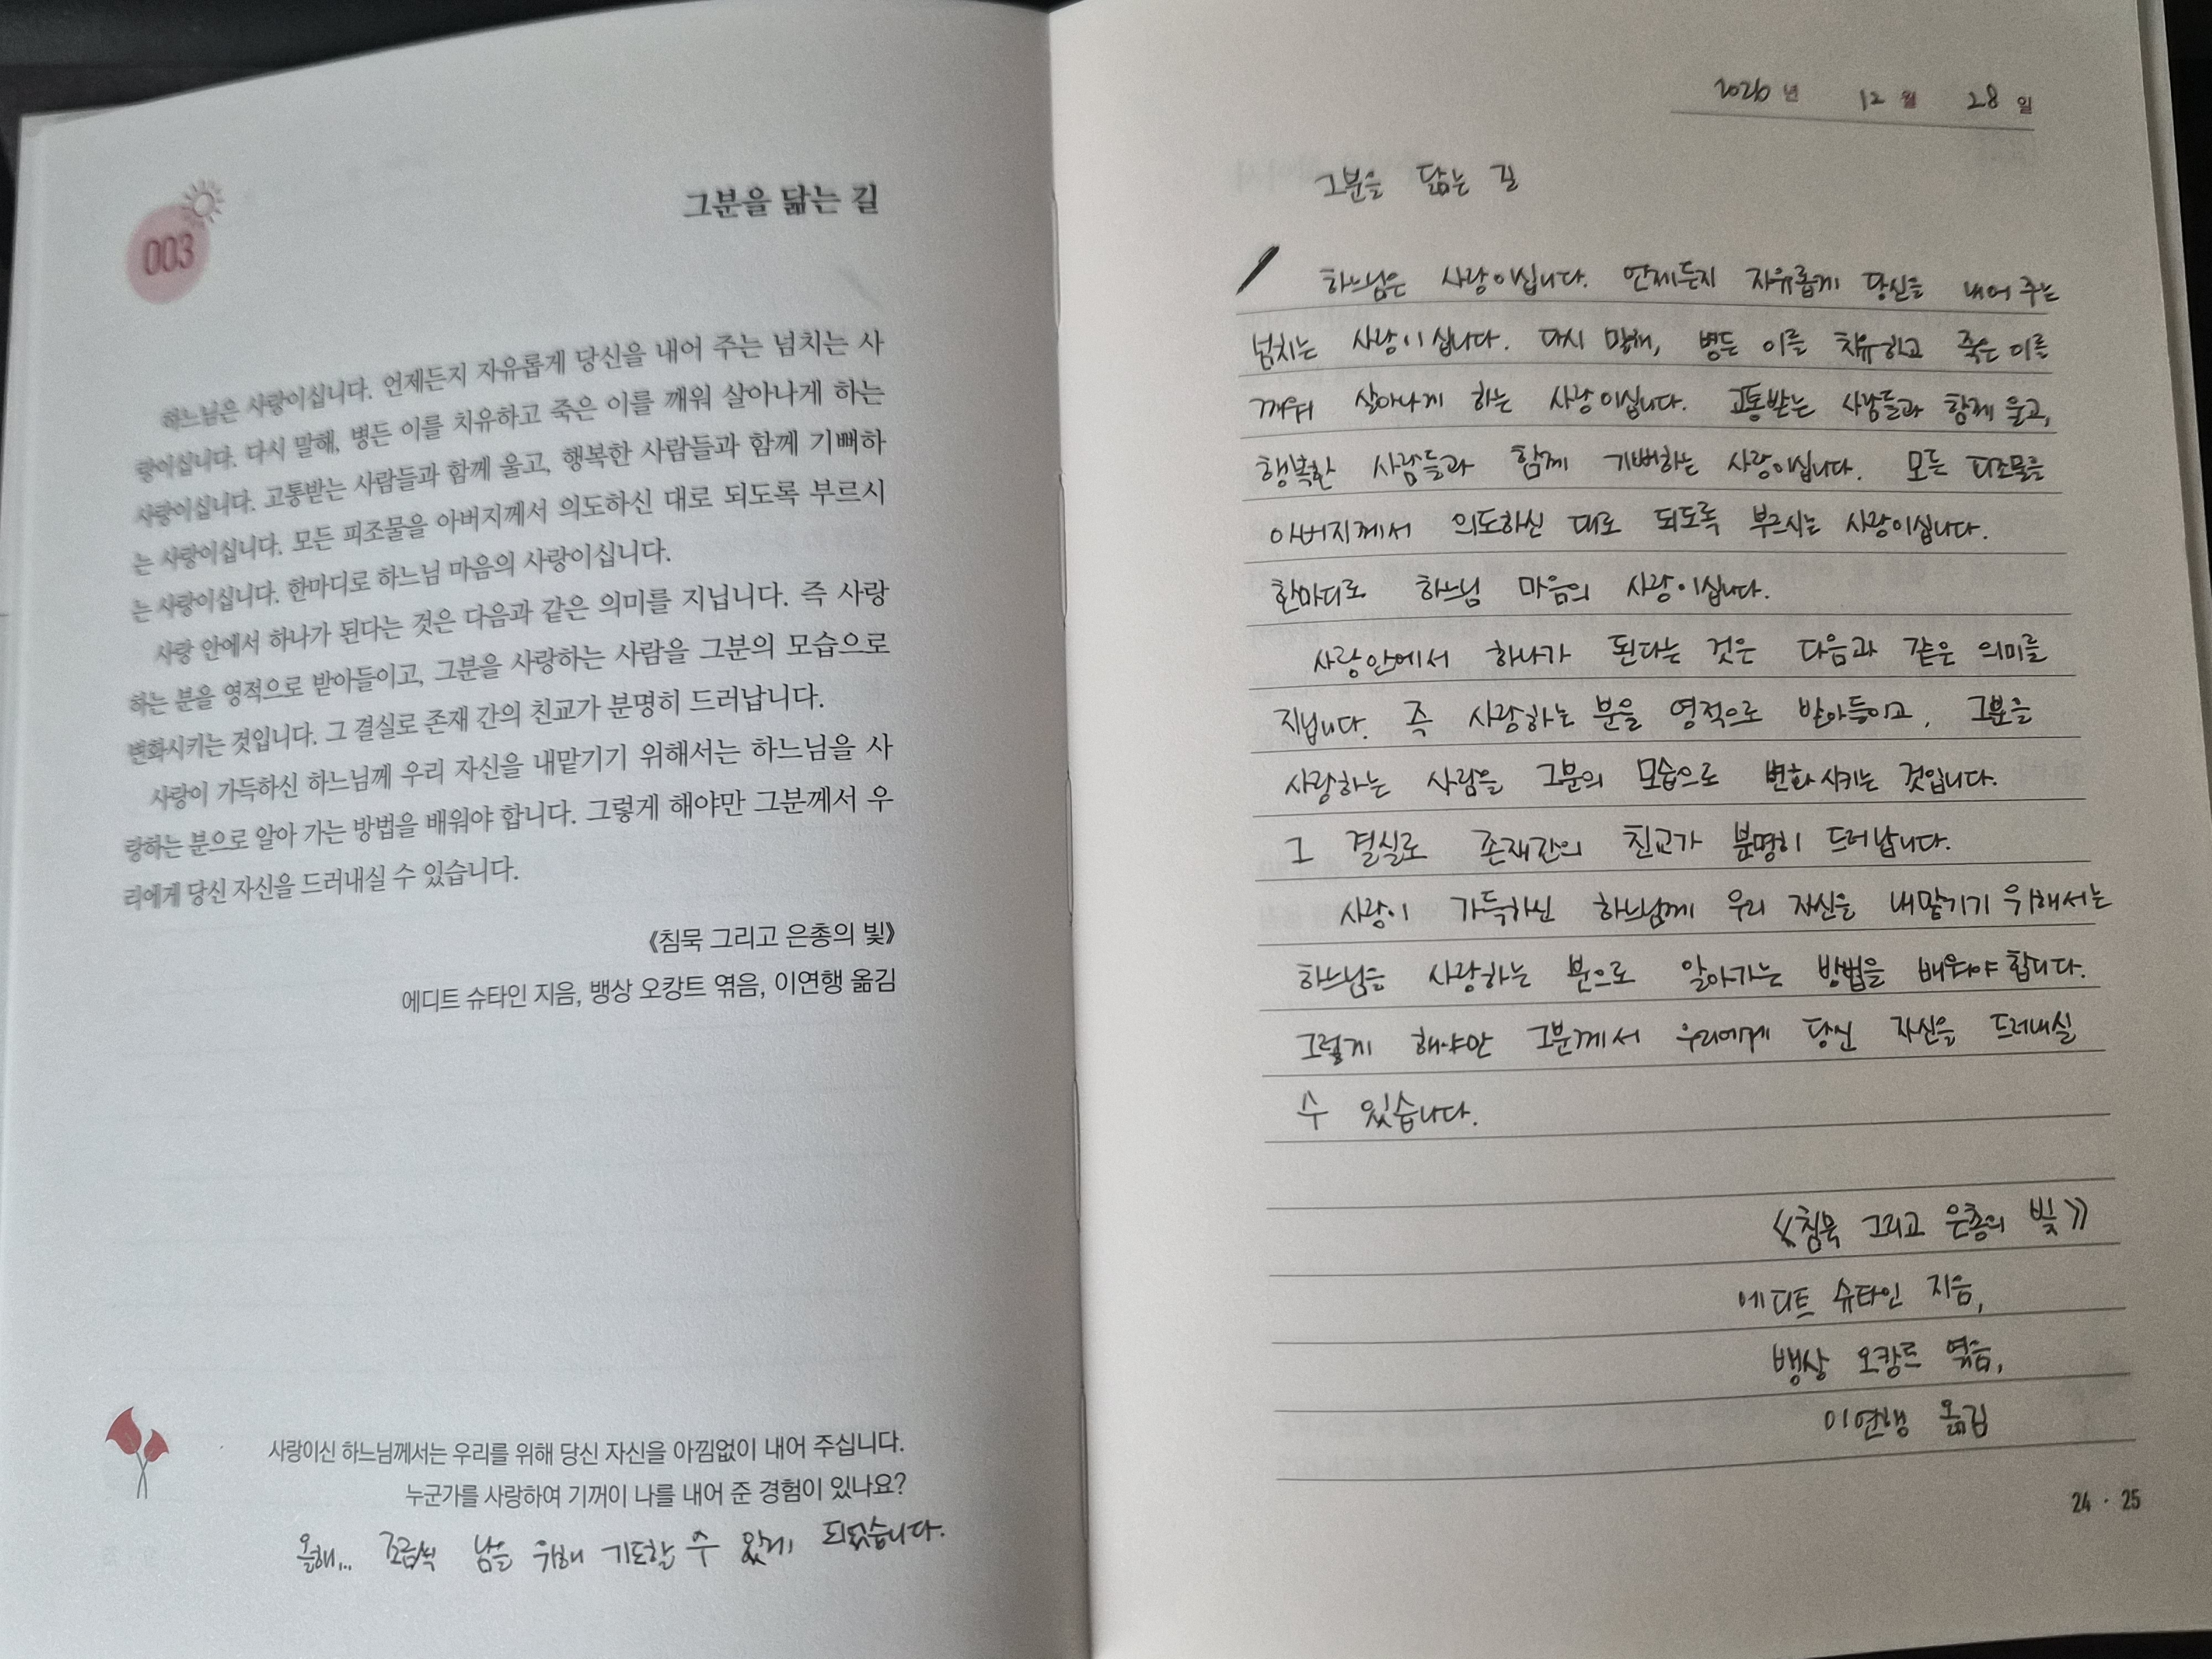 003
그분을 닮는 길
하느님은 사랑이십니다. 언제든지 자유롭게 당신을 내어 주는 넘치는 사
랑이십니다. 다시 말해, 병든 이를 치유하고 죽은 이를 깨워 살아나게 하는
사랑이십니다. 고통받는 사람들과 함께 울고, 행복한 사람들과 함께 기뻐하
는 사랑이십니다. 모든 피조물을 아버지께서 의도하신 대로 되도록 부르시
는 사랑이십니다. 한마디로 하느님 마음의 사랑이십니다.
사랑 안에서 하나가 된다는 것은 다음과 같은 의미를 지닙니다. 즉 사랑
하는 분을 영적으로 받아들이고, 그분을 사랑하는 사람을 그분의 모습으로
변화시키는 것입니다. 그 결실로 존재 간의 친교가 분명히 드러납니다.
사랑이 가득하신 하느님께 우리 자신을 내맡기기 위해서는 하느님을 사
랑하는 분으로 알아 가는 방법을 배워야 합니다. 그렇게 해야만 그분께서 우
리에게 당신 자신을 드러내실 수 있습니다.
《침묵 그리고 은총의 빛》
에디트 슈타인 지음, 뱅상 오캉트 엮음, 이연행 옮김
사랑이신 하느님께서는 우리를 위해 당신 자신을 아낌없이 내어 주십니다.
누군가를 사랑하여 기꺼이 나를 내어 준 경험이 있나요?
올해... 조금씩 남을 위해 기도할 수 있게 되었습니다.
2026년 12월 28일
그분을 닮는 길
하느님은 사랑이십니다. 언제든지 자유롭게 당신을 내어 주는
넘치는 사랑이십니다. 다시 말해, 병든 이를 치유하고 죽은 이를
깨워 살아나게 하는 사랑이십니다. 고통받는 사람들과 함께 울고,
행복한 사람들과 함께 기뻐하는 사랑이십니다. 모든 피조물을
아버지께서 의도하신 대로 되도록 부르시는 사랑이십니다.
한마디로 하느님 마음의 사랑이십니다.
사랑안에서 하나가 된다는 것은 다음과 같은 의미를
지닙니다. 즉 사랑하는 분을 영적으로 받아들이고, 그분을
사랑하는 사람을 그분의 모습으로 변화시키는 것입니다.
그 결실로 존재간의 친교가 분명히 드러납니다.
사랑이 가득하신 하느님께 우리 자신을 내맡기기 위해서는
하느님을 사랑하는 분으로 알아가는 방법을 배워야 합니다.
그렇게 해야만 그분께서 우리에게 당신 자신을 드러내실
수 있습니다.
《침묵 그리고 은총의 빛》
에디트 슈타인 지음,
뱅상 오캉트 엮음,
이연행 옮김
24 · 25